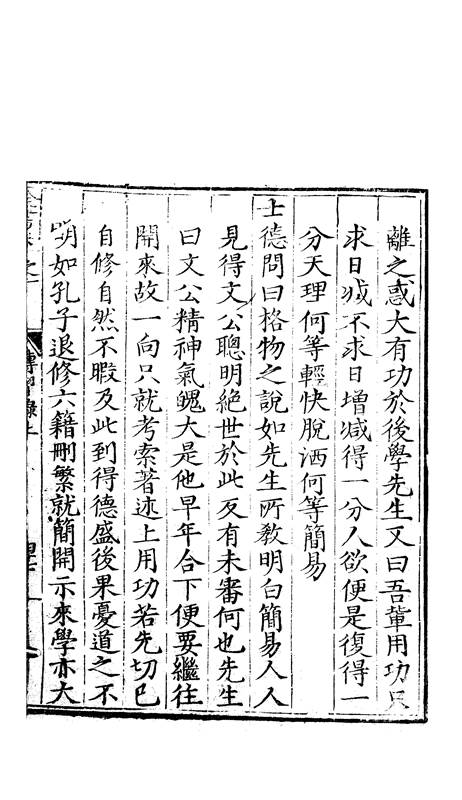 離之惑大有功於後學先生又曰吾輩用功只
求日減不求日增減得一分人欲便是復得一
分天理何等輕快脫洒何等簡易
士德問曰格物之說如先生所教明白簡易人人
見得文公聰明絕世於此反有未審何也先生
曰文公精神氣魄大是他早年合下便要繼往
開來故一向只就考索著述上用功若先切己
自修自然不暇及此到得德盛後果憂道之不
明如孔子退修六籍刪繁就簡開示來學亦大
傳習錄上